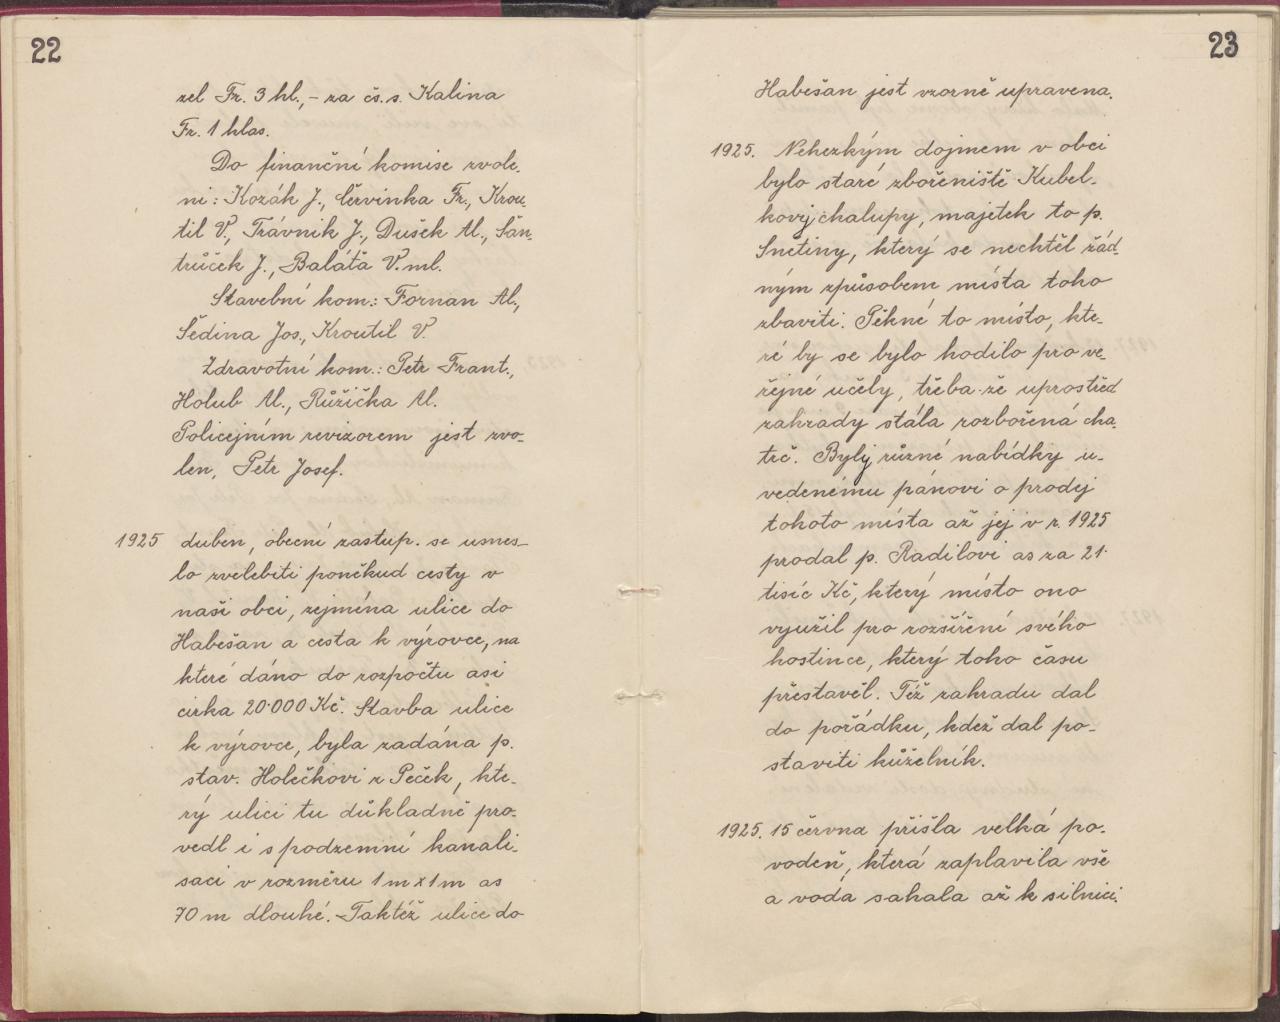 22
zel Fr. 3 hl., – za čs. s. Kalina
Fr. 1 hlas.
Do finanční komise zvole-
ni: Kozák J., Červinka Fr., Krou-
til V., Trávník J., Dušek Al., Šan-
trůček J., Balátă V. ml.
Stavební kom.: Forman Al.,
Šedina Jos., Kroutil V.
Zdravotní kom.: Petr Frant.,
Holub Al., Růžička Al.
Policejním revizorem jest zvo-
len, Petr Josef.
1925 duben, obecní zastup. se usnes-
lo zvelebiti poněkud cesty v
naši obci, zejména ulice do
Habešan a cesta k výrovce, na
které dáno do rozpočtu asi
cirka 20·000 Kč. Stavba ulice
k výrovce, byla zadána p.
stav. Holečkovi z Peček, kte-
rý ulici tu důkladně pro-
vedl i s podzemní kanali-
saci v rozměru 1 m x 1 m as
70 m dlouhé. – Taktéž ulice do
23
Habešan jest vzorně upravena.
1925. Nehezkým dojmem v obci
bylo staré zbořeniště Kubel-
kovy chalupy, majetek to p.
Snětiny, který se nechtěl žád-
ným způsobem místa toho
zbaviti. Pěkné to místo, kte-
ré by se bylo hodilo pro ve-
řejné učely, třeba-že uprostřed
zahrady stála rozbořená cha-
trč. Byly různé nabídky u-
vedenému pánovi o prodej
tohoto místa až jej v r. 1925
prodal p. Radilovi as za 21·
tisíc Kč, který místo ono
využil pro rozšíření svého
hostince, který toho času
přestavěl. Též zahradu dal
do pořádku, kdež dal po-
staviti kůželník.
1925. 15 června přišla velká po-
vodeň, která zaplavila vše
a voda sahala až k silnici.